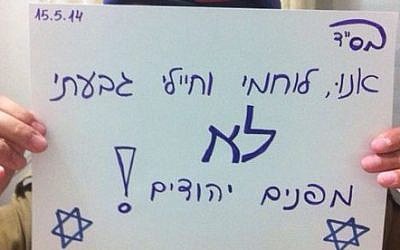 15.5.14
בס"ד
אנו, לוחמי וחיילי גבעתי
לא
מפנים יהודים !